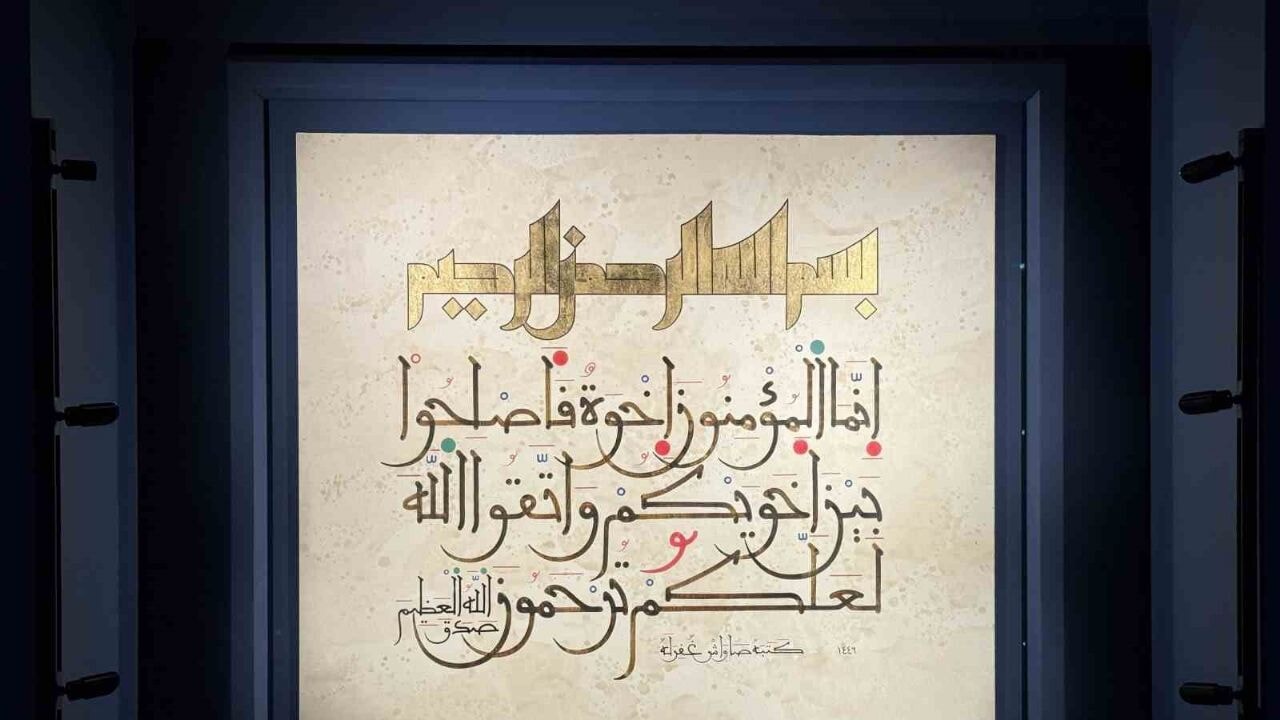 بسم الله الرحمن الرحيم
إِنَّمَا الْمُؤْمِنُونَ إِخْوَةٌ فَأَصْلِحُوا
بَيْنَ أَخَوَيْكُمْ وَاتَّقُوا اللَّهَ
لَعَلَّكُمْ تُرْحَمُونَ
صدق الله العظيم
كتبه صاواش غفر له ١٤٤٦